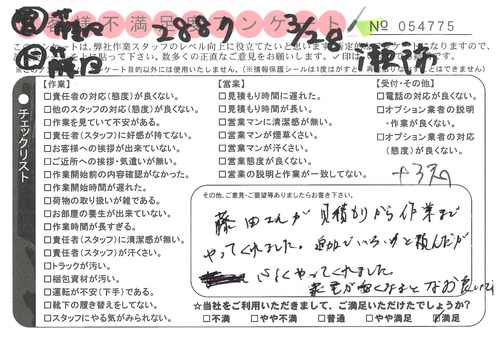 お客様不満足度アンケート
2887
3/28
No 054775
このアンケートは、弊社作業スタッフのレベル向上に役立てたいと思います。
チェックリスト
【作業】
□責任者の対応(態度)が良くない。
□他のスタッフの対応(態度)が良くない。
□作業を見ていて不安がある。
□責任者(スタッフ)に好感が持てない。
□お客様への挨拶が出来ていない。
□ご近所への挨拶・気遣いが無い。
□作業開始前の内容確認がなかった。
□作業開始時間が遅れた。
□荷物の取り扱いが雑である。
□お部屋の養生が出来ていない。
□作業時間が長すぎる。
□責任者(スタッフ)に清潔感が無い。
□責任者(スタッフ)が汗くさい。
□トラックが汚い。
□梱包資材が汚い。
□運転が不安(下手)である。
□靴下の履き替えをしてない。
□スタッフにやる気がみられない。
【営業】
□見積もり時間に遅れた。
□見積もり時間が長い。
□営業マンに清潔感が無い。
□営業マンが煙草くさい。
□営業マンが汗くさい。
□営業態度が良くない。
□営業の説明と作業が一致してない。
【受付・その他】
□電話の対応が良くない。
□オプション業者の説明・作業が良くない。
□オプション業者の対応(態度)が良くない。
その他、ご意見・ご要望等ありましたらお書き下さい。
藤田さんが見積もりから作業まで
やってくれました。追加でいろいろと頼んだが
快くやってくれました。
☆当社をご利用いただきまして、ご満足いただけたでしょうか?
□不満 □やや不満 □普通 □やや満足 □満足